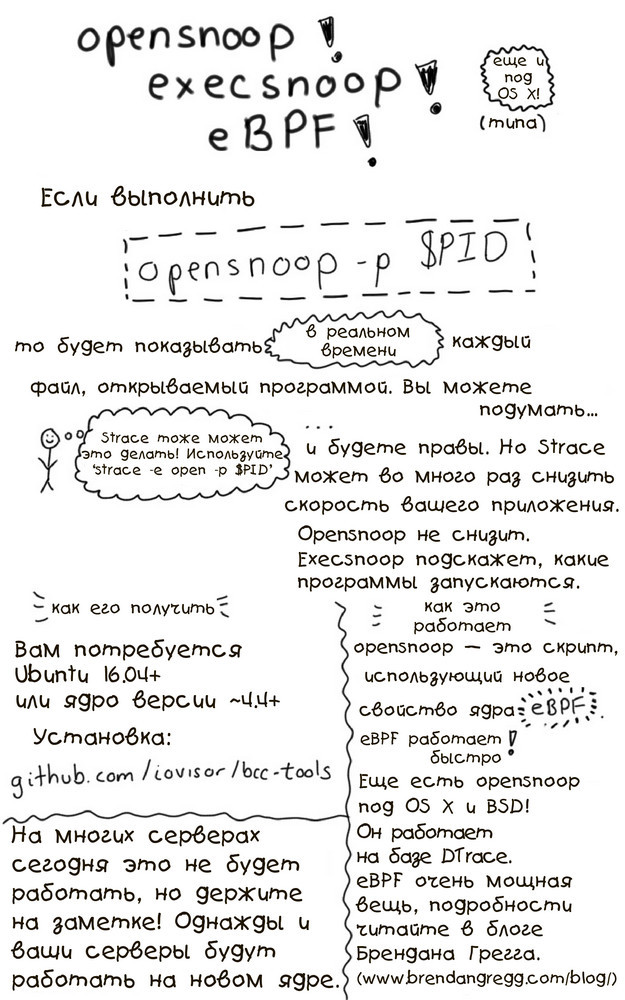 opensnoop!
execsnoop!
eBPF!
еще и
под
OS X!
(типа)
Если выполнить
opensnoop -p $PID
то будет показывать в реальном времени каждый
файл, открываемый программой. Вы можете
подумать...
Strace тоже может
это делать! Используйте
'strace -e open -p $PID'
...
и будете правы. Но Strace
может во много раз снизить
скорость вашего приложения.
Opensnoop не снизит.
Execsnoop подскажет, какие
программы запускаются.
как его получить
Вам потребуется
Ubuntu 16.04+
или ядро версии ~4.4+
Установка:
github.com/iovisor/bcc-tools
На многих серверах
сегодня это не будет
работать, но держите
на заметке! Однажды и
ваши серверы будут
работать на новом ядре.
как это
работает
opensnoop — это скрипт,
использующий новое
свойство ядра eBPF.
eBPF работает
быстро!
Еще есть opensnoop
под OS X и BSD!
Он работает
на базе DTrace.
eBPF очень мощная
вещь, подробности
читайте в блоге
Брендана Грегга.
(www.brendangregg.com/blog/)